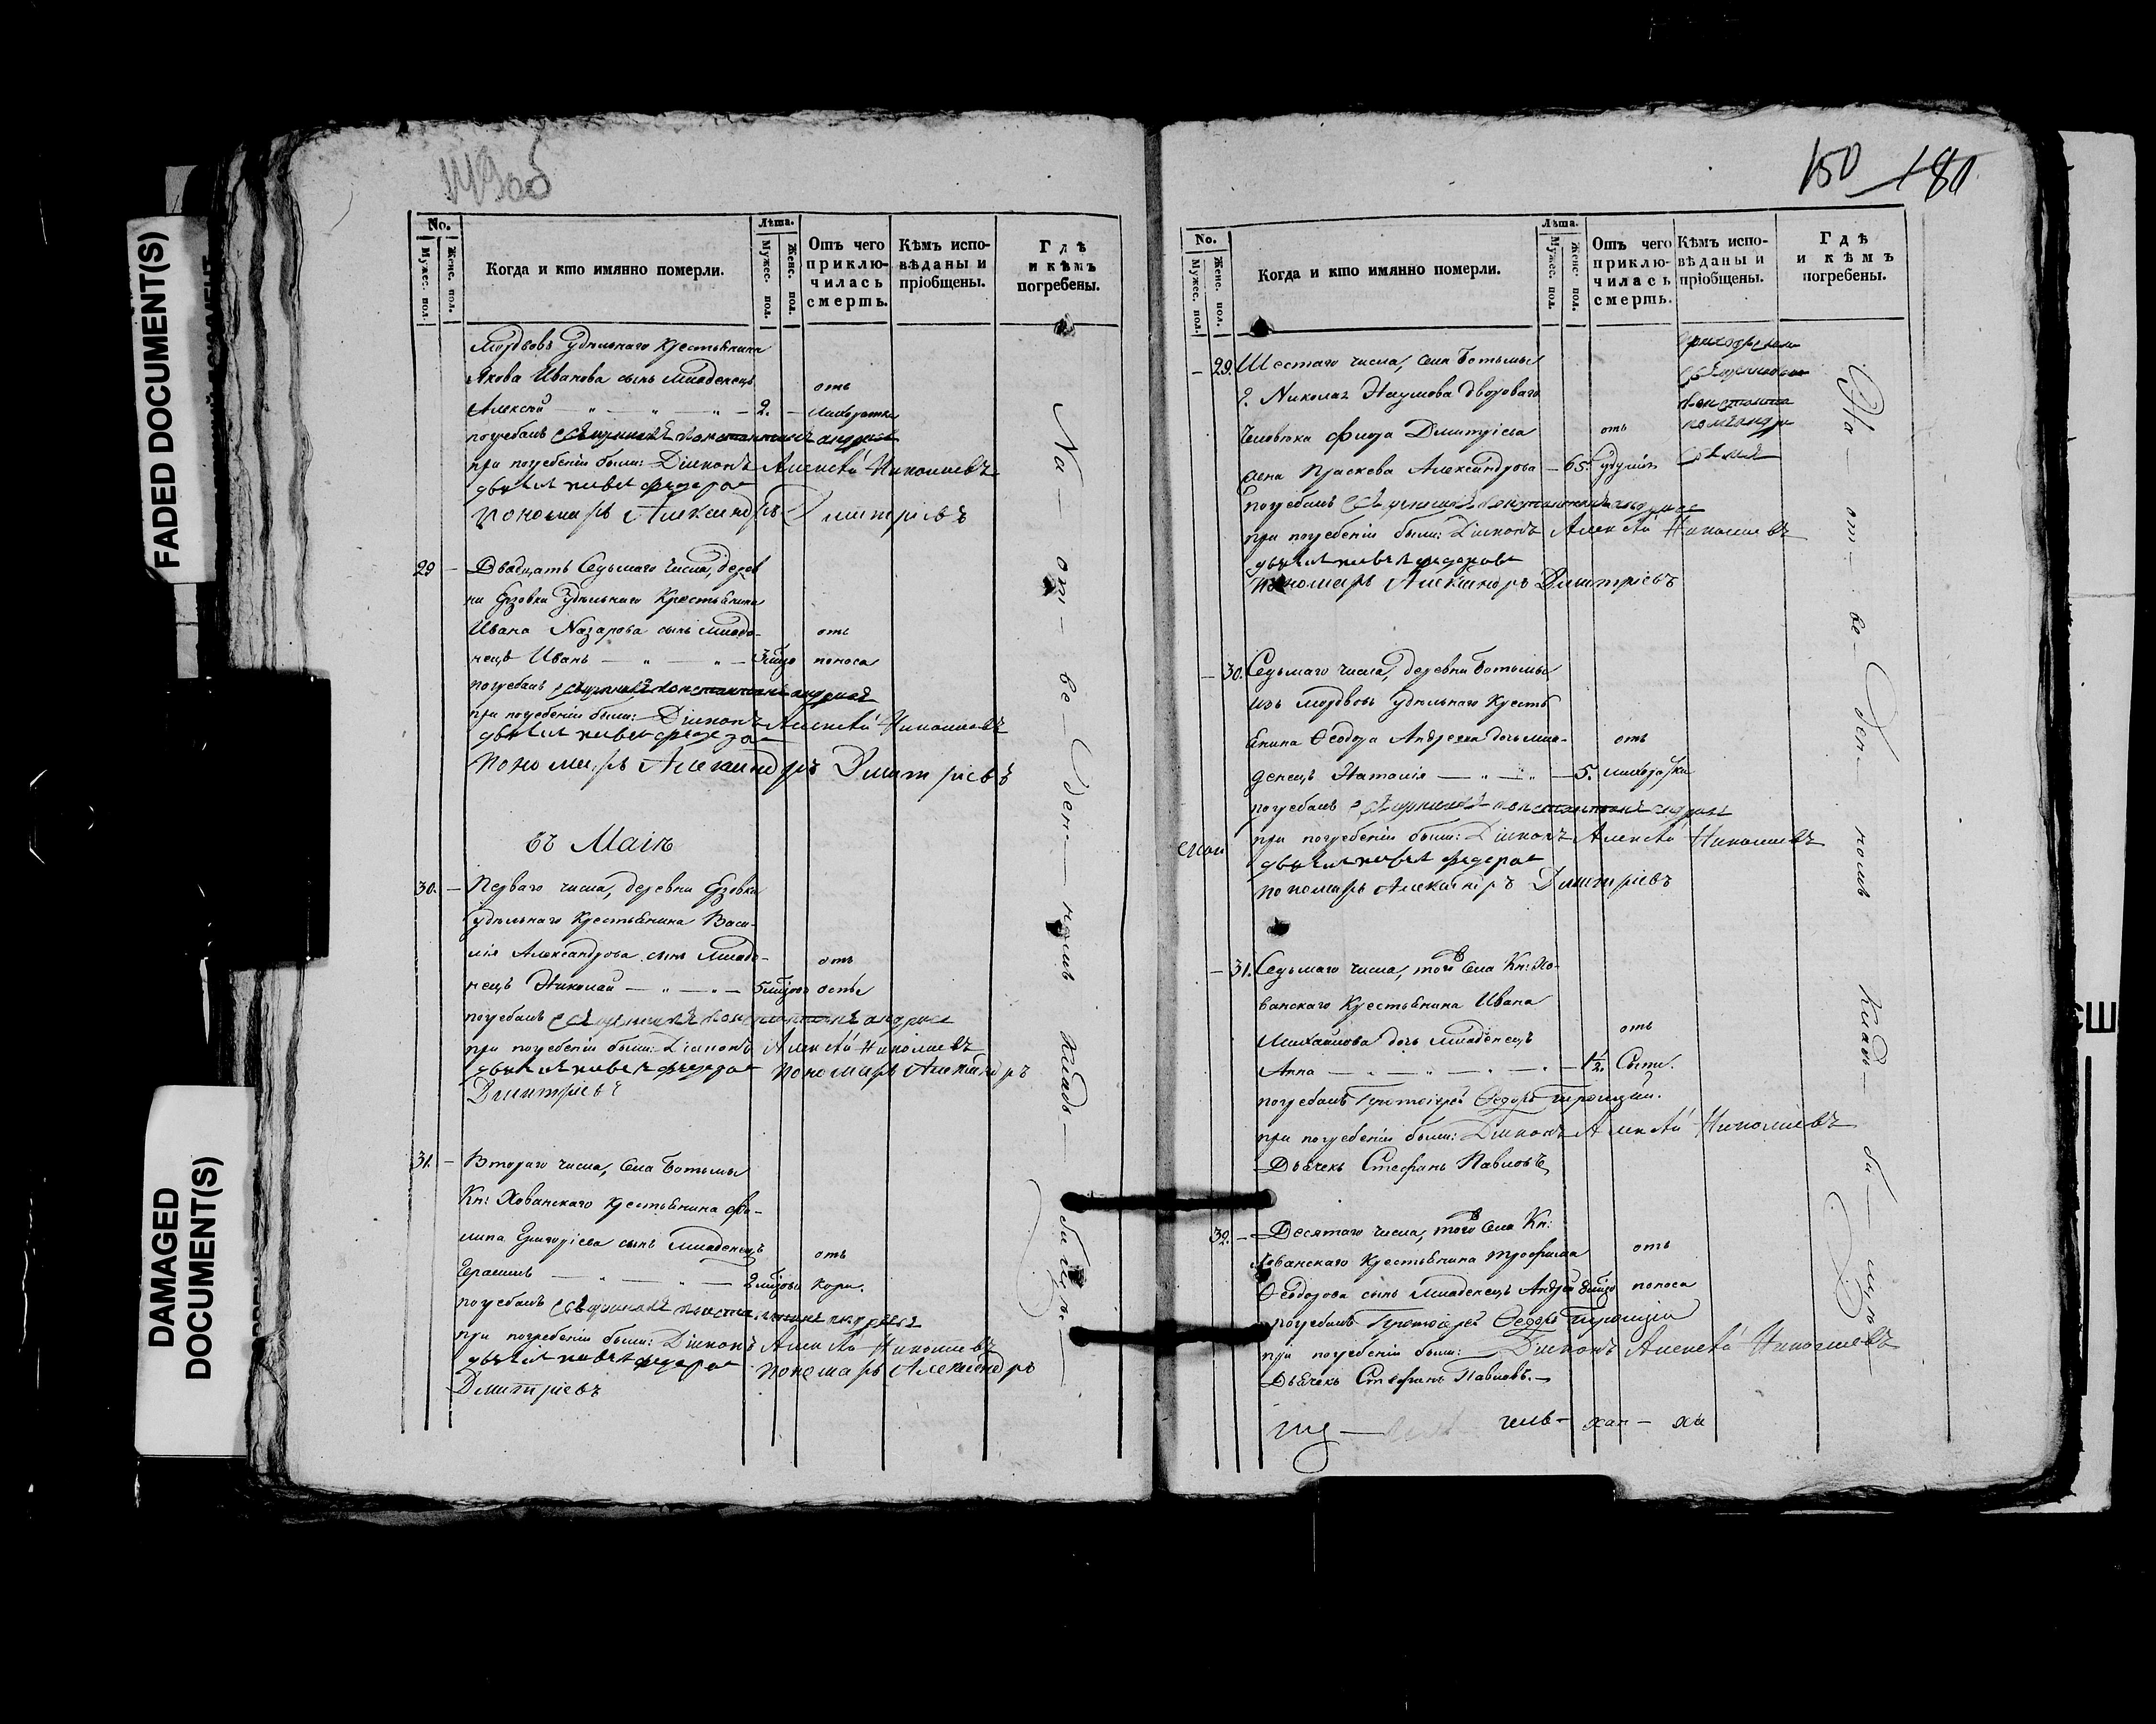 FADED DOCUMENT(S)
DAMAGED
DOCUMENT(S)
149 об
No.
Мужес. пол.
Женс. пол.
Когда и кто имянно померли.
Лѣта.
Мужес. пол.
Женс. пол.
Отъ чего приключилась смерть.
Кѣмъ исповѣданы и пріобщены.
Гдѣ и кѣмъ погребены.
Мордвовъ Удѣльнаго Крестьянина
Якова Иванова сынъ младенецъ
Алексѣй — „ — „ — „ — 2. — отъ лихорадки
погребалъ священникъ Константинъ Андреев
при погребеніи были: Діаконъ Алексѣй Николаевъ
дьячек Федоров
пономарь Александръ Дмитріевъ
29 — Двадцать Седьмаго числа, дерев
ни Ерзовки Удѣльнаго Крестьянина
Ивана Назарова сынъ младе-
нецъ Иванъ — „ — „ — 3 отъ поноса
погребалъ священникъ Константинъ Андреев
при погребеніи были: Діаконъ Алексѣй Николаевъ
дьячек Федоров
пономарь Александръ Дмитріевъ
въ Маіѣ
30. — Перваго числа, деревни Ерзовки
удѣльнаго Крестьянина Васи-
лія Александрова сынъ младе-
нецъ Николай — „ — „ — 5 отъ оспы
погребалъ священникъ Константинъ Андреев
при погребеніи были: Діаконъ Алексѣй Николаевъ
дьячек Федоров пономарь Александръ
Дмитріевъ
31. — Втораго числа, села Ботьмы
Кн: Хованскаго крестьянина Фи-
липа Григорьева сынъ младенецъ
Герасимъ — „ — „ — 2 отъ кори.
погребалъ священникъ Константинъ Андреев
при погребеніи были: Діаконъ Алексѣй Николаевъ
дьячек Федоров пономарь Александръ
Дмитріевъ
На — от — ве — ден — номъ кладь — би щѣ —
150 180
No.
Мужес. пол.
Женс. пол.
Когда и кто имянно померли.
Лѣта.
Мужес. пол.
Женс. пол.
Отъ чего приключилась смерть.
Кѣмъ исповѣданы и пріобщены.
Гдѣ и кѣмъ погребены.
— 29. Шестаго числа, села Ботьмы
г. Николая Наумова двороваго
человѣка Дмитріева
жена Праскева Александрова — 65. отъ
погребалъ священникъ Константинъ Андреев
при погребеніи были: Діаконъ Алексѣй Николаевъ
дьячек Федоров
пономарь Александръ Дмитріевъ
— 30. Седьмаго числа, деревни Ботьмы
изъ мордвовъ Удѣльнаго Кресть
янина Ѳеодора Андреева дочь мла-
денецъ Наталія — „ — „ — 5. отъ лихорадки
погребалъ священникъ Константинъ Андреев
при погребеніи были: Діаконъ Алексѣй Николаевъ
дьячек Федоров
пономарь Александръ Дмитріевъ
— 31. Седьмаго числа, того села Кн: Хо-
ванскаго Крестьянина Ивана
Михайлова дочь младенецъ
Анна — „ — „ — „ — 1½. отъ Сыпи.
погребалъ Протоіерей Ѳедоръ Троицкій.
при погребеніи были: Діаконъ Алексѣй Николаевъ
Дьячекъ Стефанъ Павловъ
32. — Десятаго числа, того села Кн:
Хованскаго Крестьянина Трофима
Ѳеодорова сынъ младенецъ Андрей отъ поноса
погребалъ Протоіерей Ѳедоръ Троицкій
при погребеніи были: Діаконъ Алексѣй Николаевъ
Дьячекъ Стефанъ Павловъ. —
На — от — ве — ден — номъ клад — би — щѣ